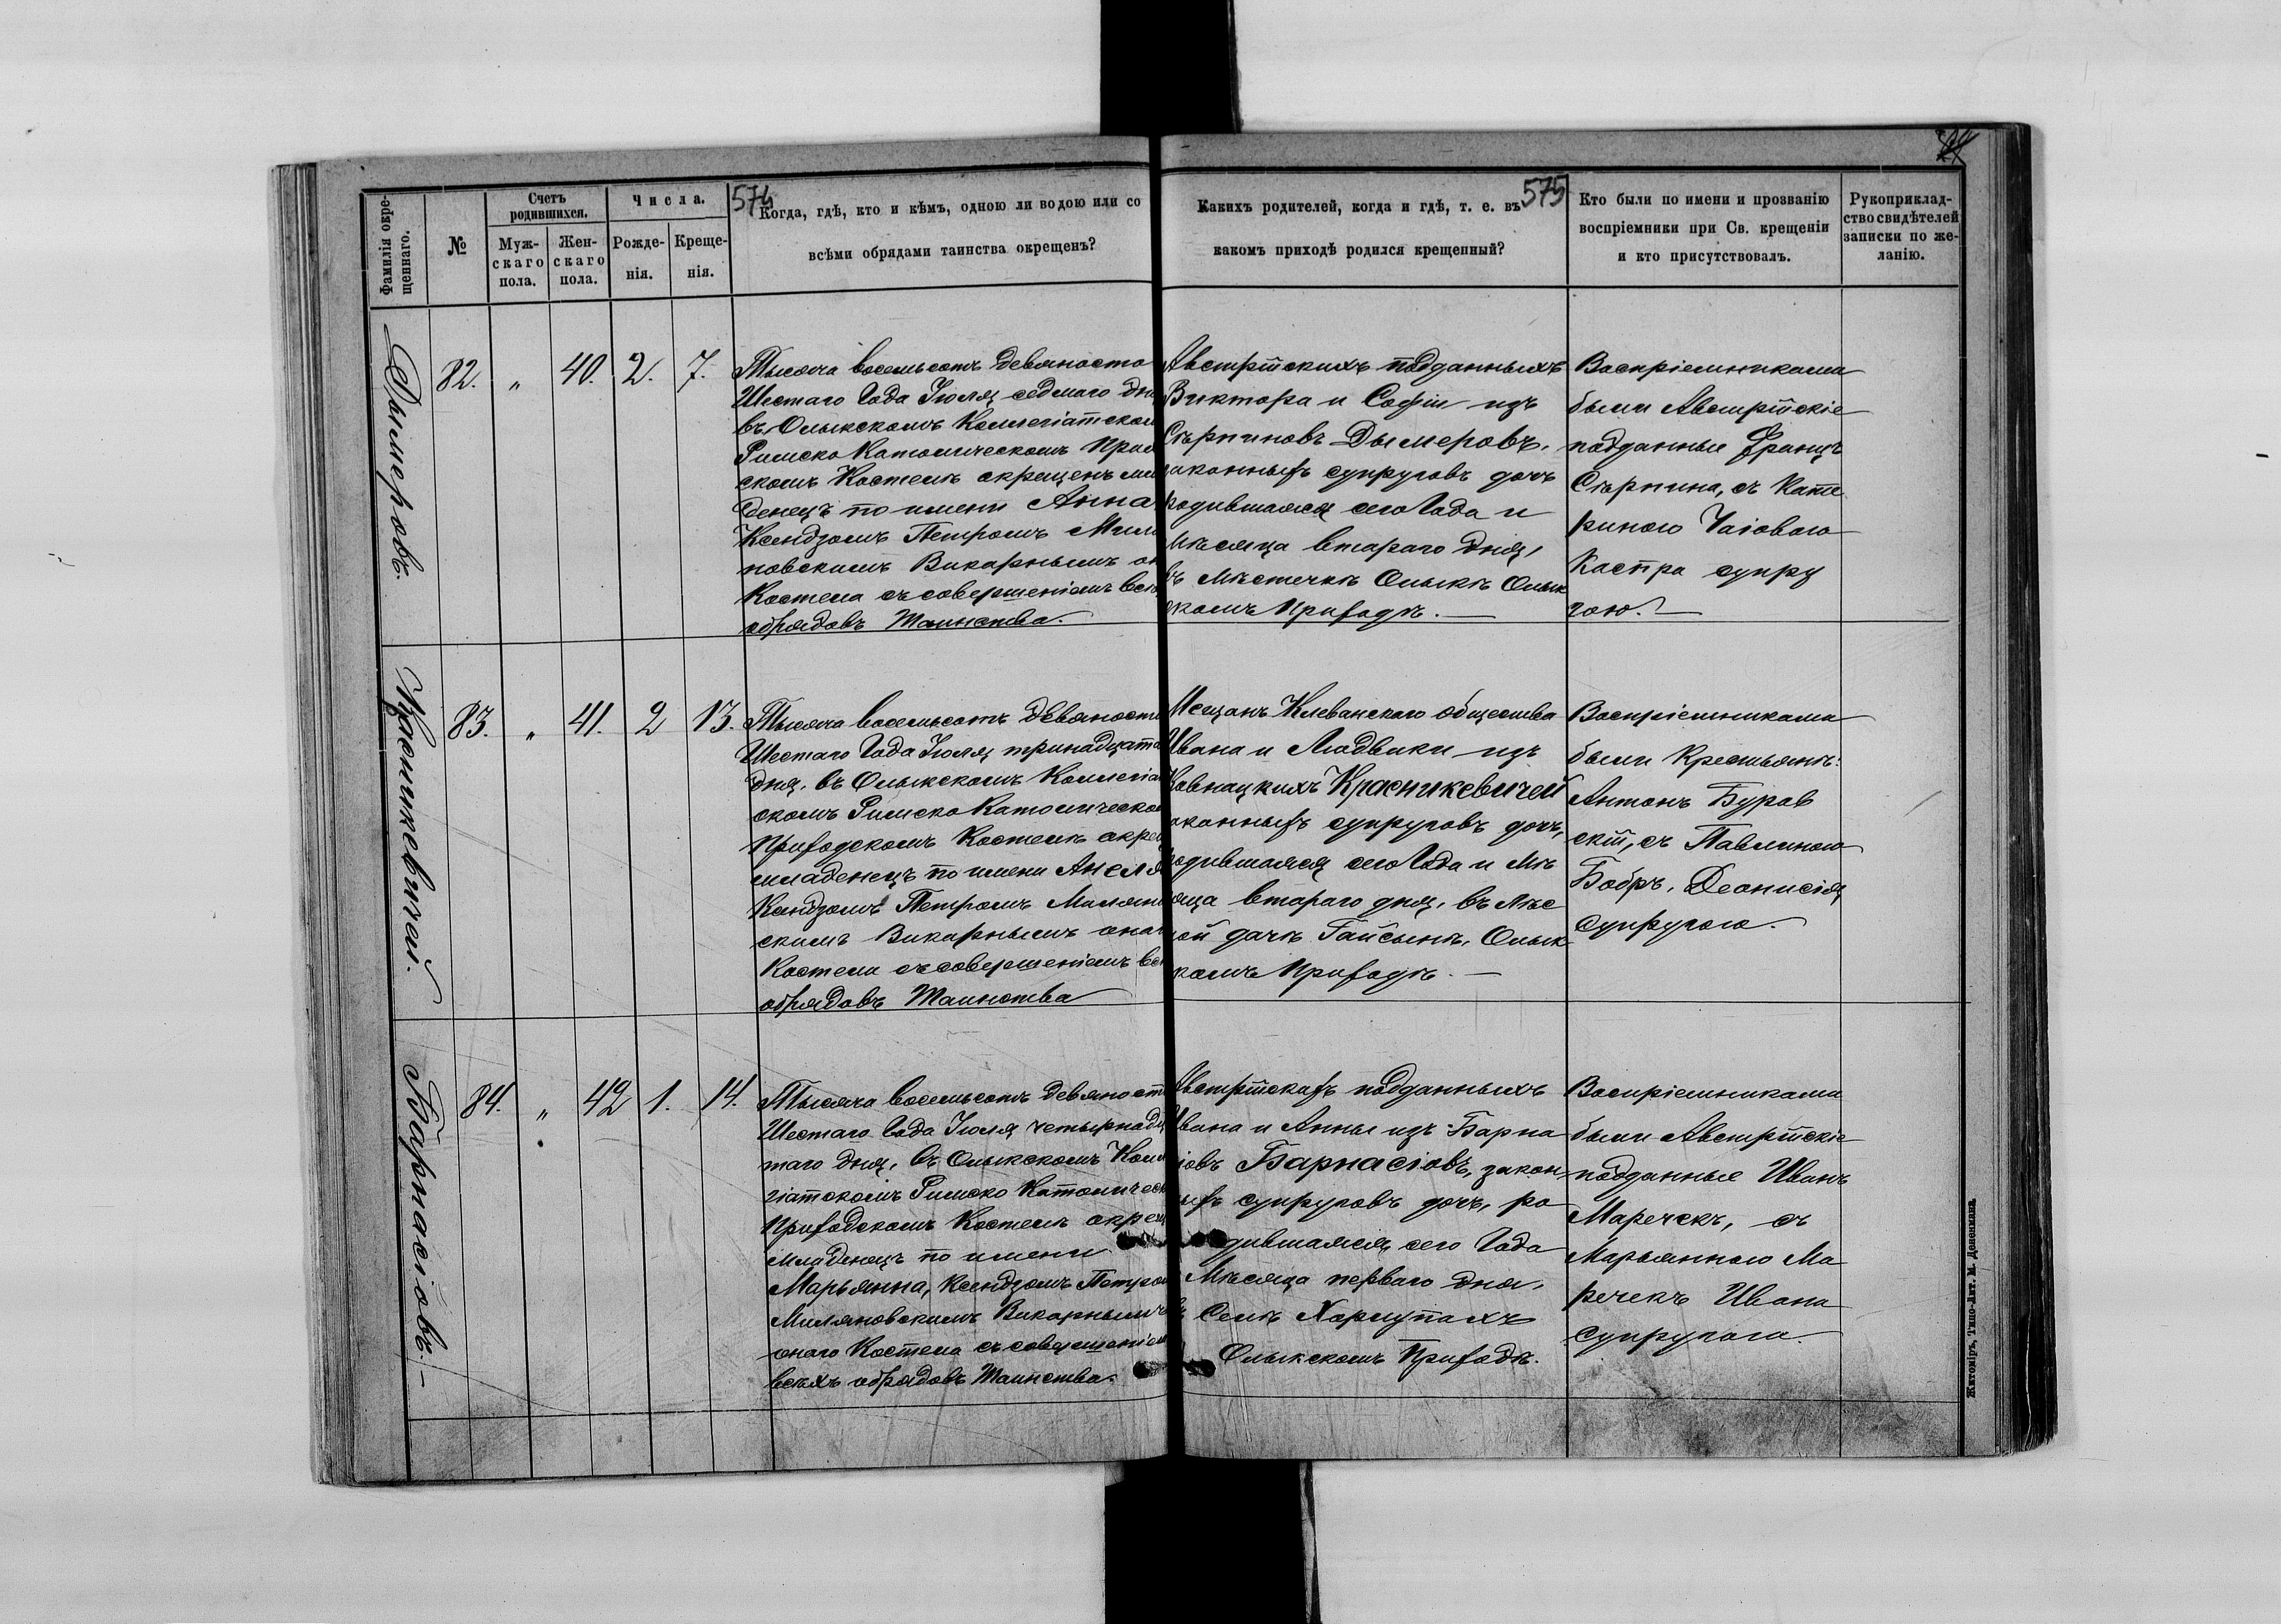 574
575
Фамилія окре-
щеннаго.
№
Счетъ
родившихся.
Муж-
скаго
пола.
Жен-
скаго
пола.
Числа.
Рожде-
нія.
Креще-
нія.
Когда, гдѣ, кто и кѣмъ, одною ли водою или со
всѣми обрядами таинства окрещенъ?
Какихъ родителей, когда и гдѣ, т. е. въ
какомъ приходѣ родился крещенный?
Кто были по имени и прозванію
воспріемники при Св. крещеніи
и кто присутствовалъ.
Рукоприклад-
ство свидѣтелей
записки по же-
ланію.
Дымеровъ.
82.
„
40.
2.
7.
Тысяча восемьсотъ девяносто
Шестаго Года Іюля седмаго дн
въ Олыкскомъ Коллегіатском
Римско Католическомъ Прих
скомъ Костелѣ окрещенъ мла
денецъ по имени Анна
Ксендзомъ Петромъ Миля
новскимъ Викарнымъ он
Костела съ совершеніемъ всѣ
обрядовъ Таинства.
Австрійскихъ подданныхъ
Виктора и Софіи изъ
Стърпиновъ Дымеровъ,
законныхъ супруговъ дочь
родившаяся сего Года и
Мѣсяца втараго дня,
въ Мѣстечкѣ Олыкѣ Олык
скомъ Приходѣ. —
Воспріемниками
были Австрійскіе
подданные Францъ
Стърпина, съ Кате
риною Чаіоваго
Каспра супру
гою. —
Красникевичей.
83.
„
41.
2
13.
Тысяча восемьсотъ девяности
Шестаго Года Іюля тринадцата
дня, въ Олыкскомъ Коллегіа
скомъ Римско Католическом
Приходскомъ Костелѣ окрещ
младенецъ по имени Анеля
Ксендзомъ Петромъ Милянов
скимъ Викарнымъ онаг
Костела съ совершеніемъ всѣ
обрядовъ Таинства
Мещанъ Клеванскаго общества
Ивана и Людвики изъ
Ковнацкихъ Красникевичей
законныхъ супруговъ дочь,
родившаяся сего Года и Мѣ
сяца втараго дня, въ Лѣс
ной дачѣ Гайсынѣ, Олык
скомъ Приходѣ. —
Воспріемниками
были Крестьянѣ:
Антонъ Буров
скій, съ Павлиною
Бобръ, Деонисія
супругою.
Барнасіовъ. —
84.
„
42
1.
14.
Тысяча восемьсотъ девяности
Шестаго Года Іюля четырнадц
таго дня, въ Олыкскомъ Колл
гіатскомъ Римско Католическ
Приходскомъ Костелѣ окрещ
младенецъ по имени
Марьянна, Ксендзомъ Петром
Миляновскимъ Викарнымъ
онаго Костела съ совершеніем
всѣхъ обрядовъ Таинства.
Австрійскихъ подданныхъ
Ивана и Анны изъ Барна
сіовъ Барнасіовъ, закон
ныхъ супруговъ дочь, ро
дившаяся сего Года
Мѣсяца перваго дня,
въ Селѣ Хорлупахъ
Олыкскомъ Приходѣ.
Воспріемниками
были Австрійскіе
подданные Иванъ
Маречекъ, съ
Марьянною Ма
речекъ Ивана
супругою.
Житоміръ, Типо-Лит. М. Дененмана.